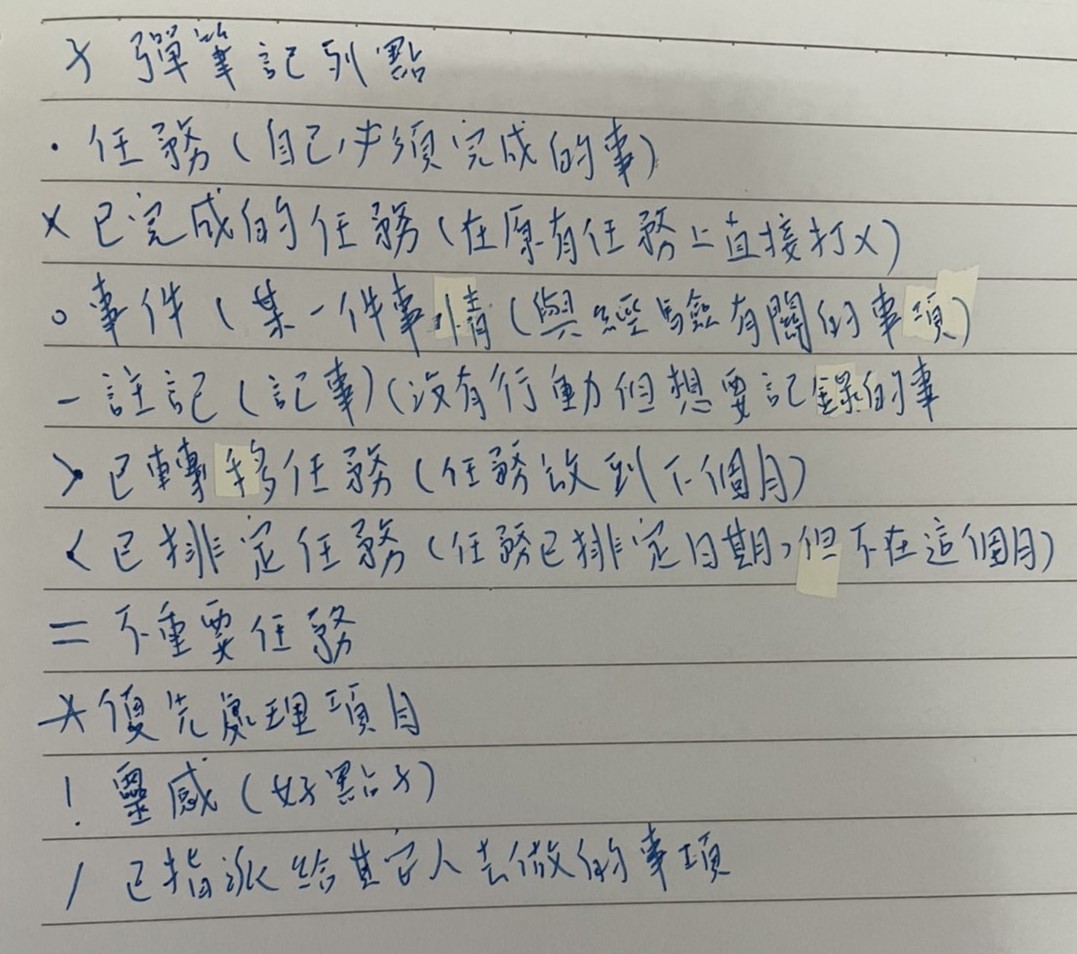 子彈筆記列點
· 任務(自己必須完成的事)
× 已完成的任務(在原有任務上直接打×)
○ 事件(某一件事情(與經驗有關的事項)
- 註記(記事)(沒有行動但想要記錄的事
> 已轉移任務(任務放到下個月)
< 已排定任務(任務已排定日期,但不在這個月)
= 不重要任務
* 優先處理項目
! 靈感(好點子)
/ 已指派給其它人去做的事項